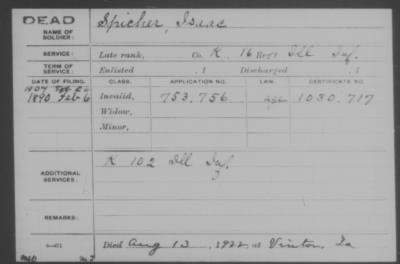 DEAD
NAME OF SOLDIER: Spicher, Isaac
SERVICE: Late rank, Co. K, 16 Reg't Ill Inf.
TERM OF SERVICE: Enlisted , 1 Discharged , 1
DATE OF FILING. CLASS. APPLICATION NO. LAW. CERTIFICATE NO.
1907
1890 Feb 6 Invalid, 753,756 age 1030,717
Widow,
Minor,
ADDITIONAL SERVICES: K 102 Ill Inf.
REMARKS:
Died Aug 13, 1922, at Vinton, Ia